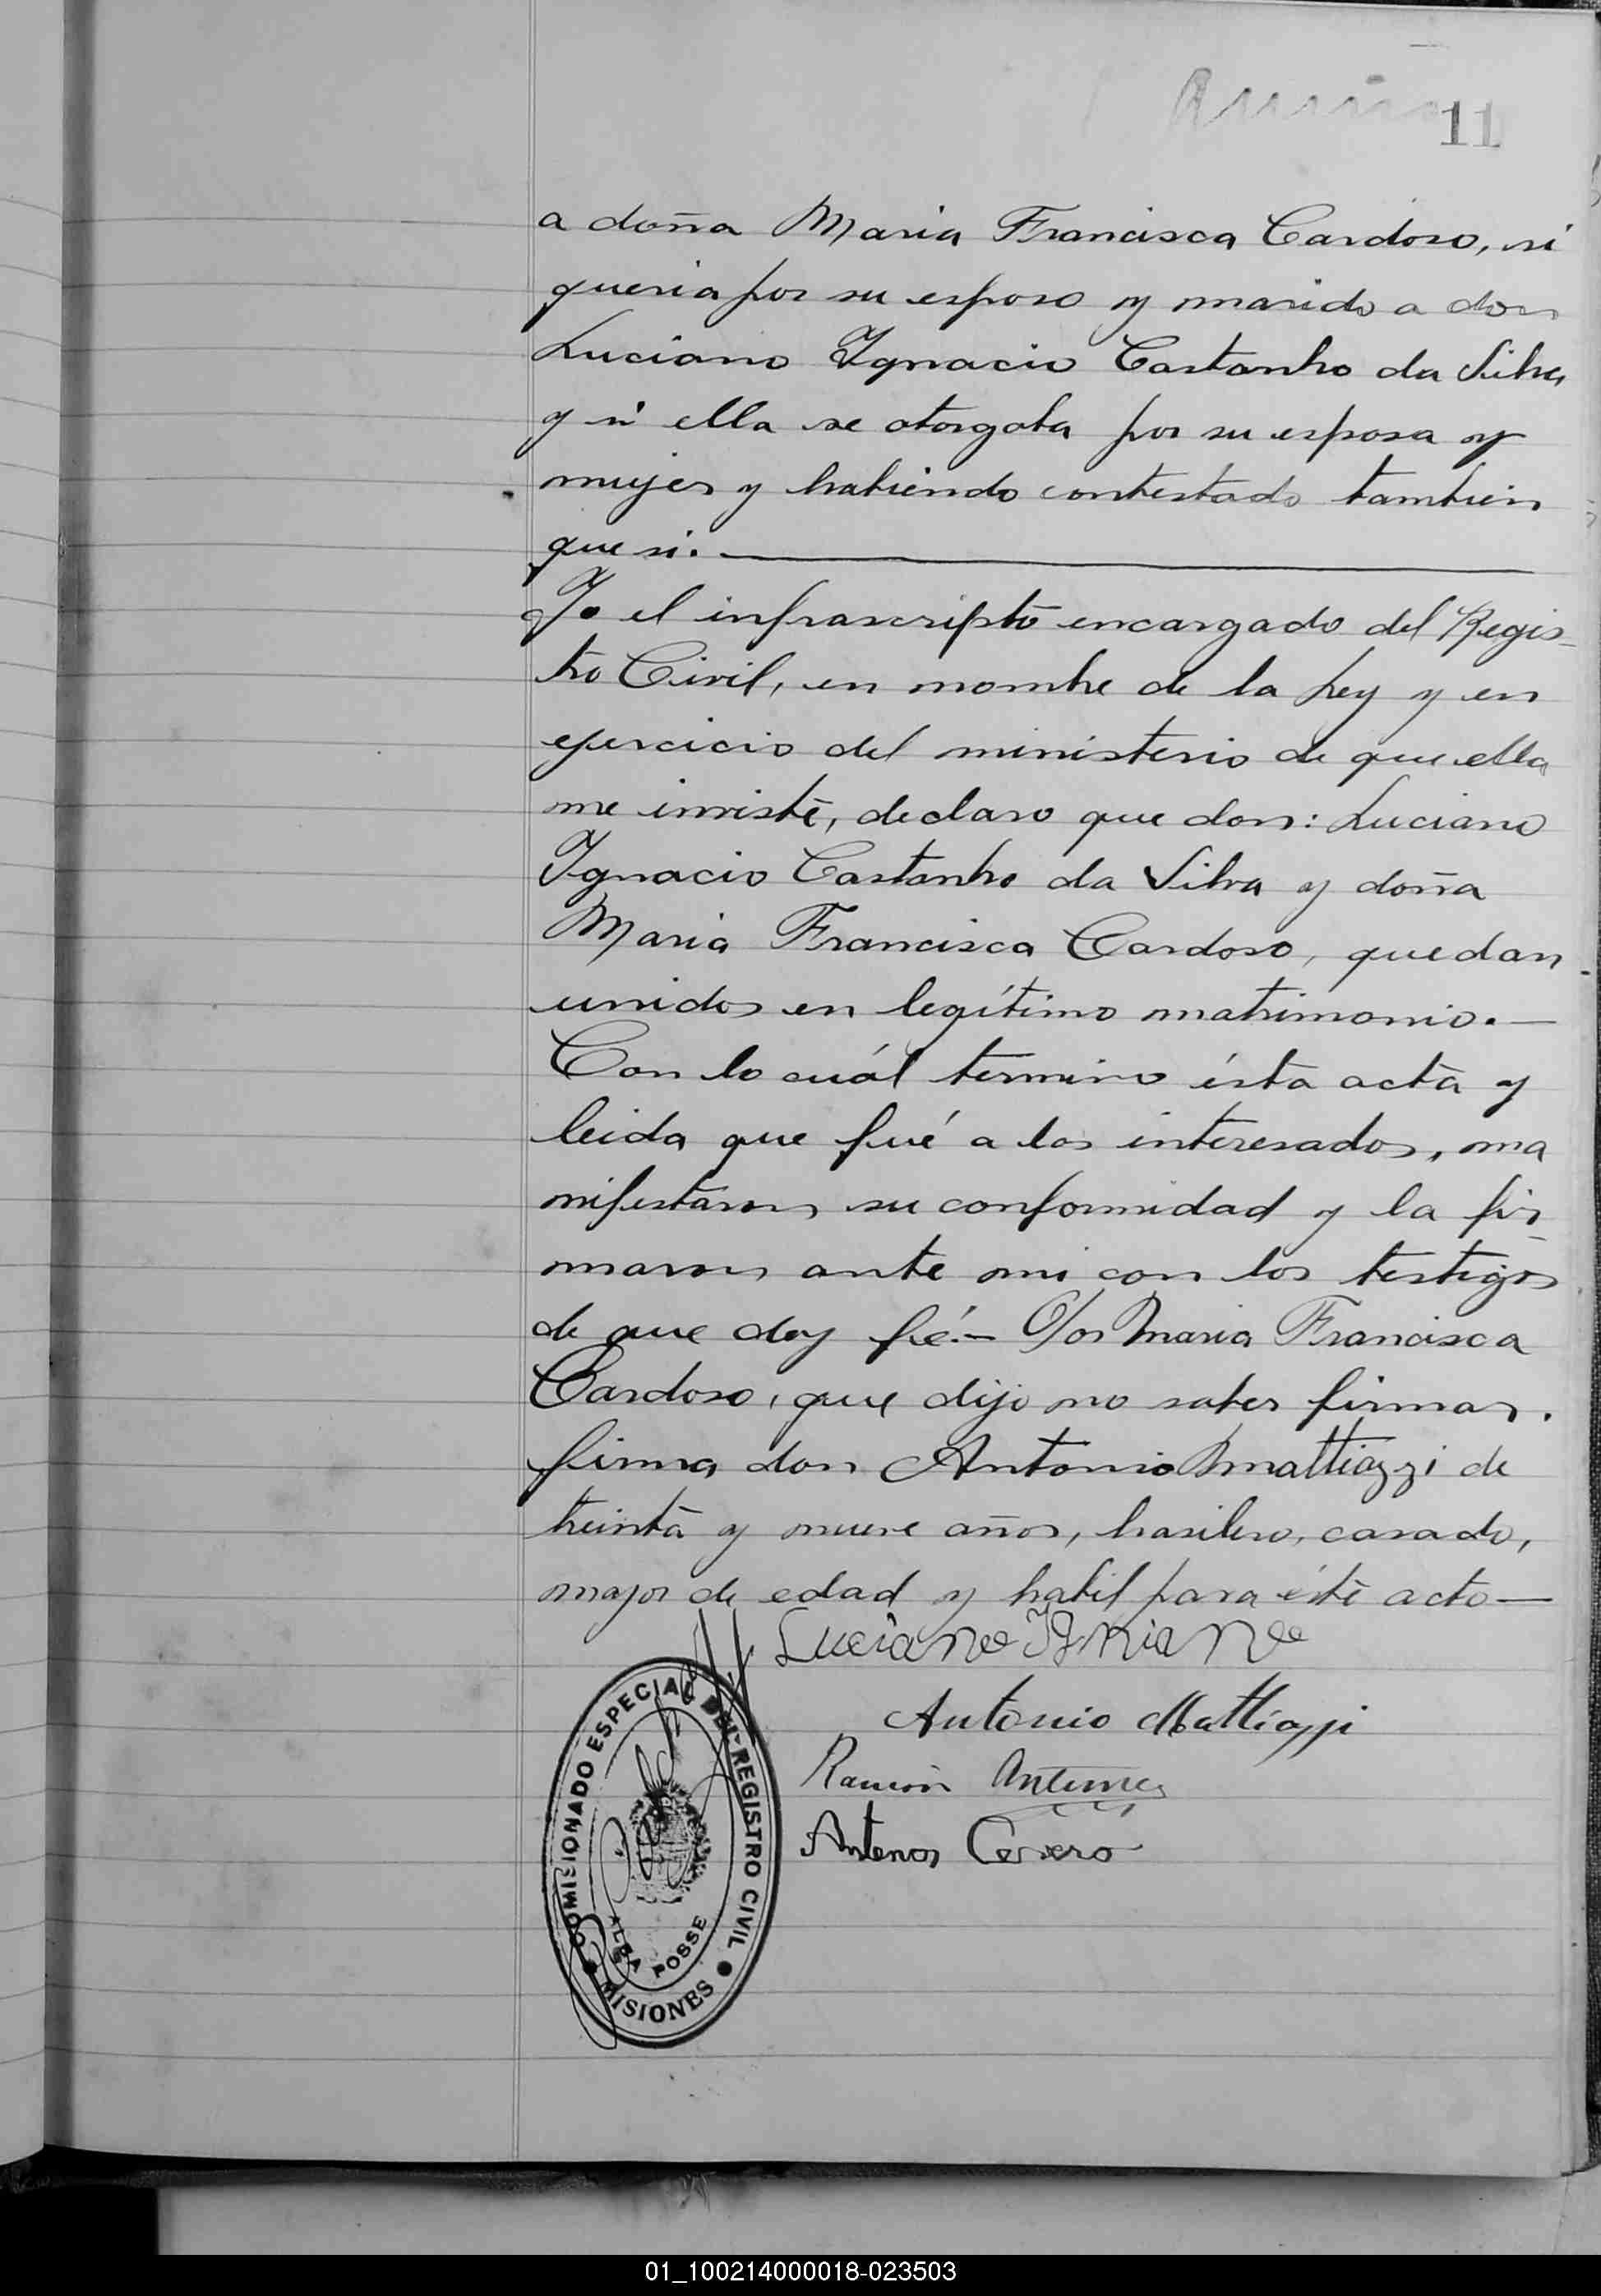 11
a doña Maria Francisca Cardoso, si
queria por su esposo y marido a don
Luciano Ygnacio Castanho da Silva
y si ella se otorgaba por su esposa y
mujer y habiendo contestado tambien
que si.
Yo el infrascripto encargado del Regis-
tro Civil, en nombre de la Ley y en
ejercicio del ministerio de que ella
me inviste, declaro que don: Luciano
Ygnacio Castanho da Silva y doña
Maria Francisca Cardoso, quedan
unidos en legítimo matrimonio.—
Con lo cuál termino ésta acta y
leida que fué a los interesados, ma
nifestaron su conformidad y la fir
maron ante mi con los testigos
de que doy fé.— Por Maria Francisca
Cardoso, que dijo no saber firmar.
firma don Antonio Mattiazzi de
treinta y nueve años, brasilero, casado,
mayor de edad y habil para éste acto—
Luciano
Antonio Mattiazzi
Ramón
Antenor
COMISIONADO ESPECIAL DEL REGISTRO CIVIL
ALBA POSSE
MISIONES
01_100214000018-023503